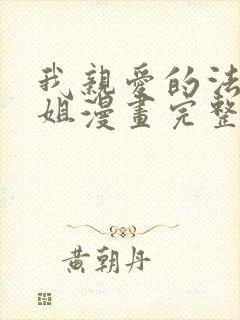 我親愛的法
姐漫畫完整
黃朝丹